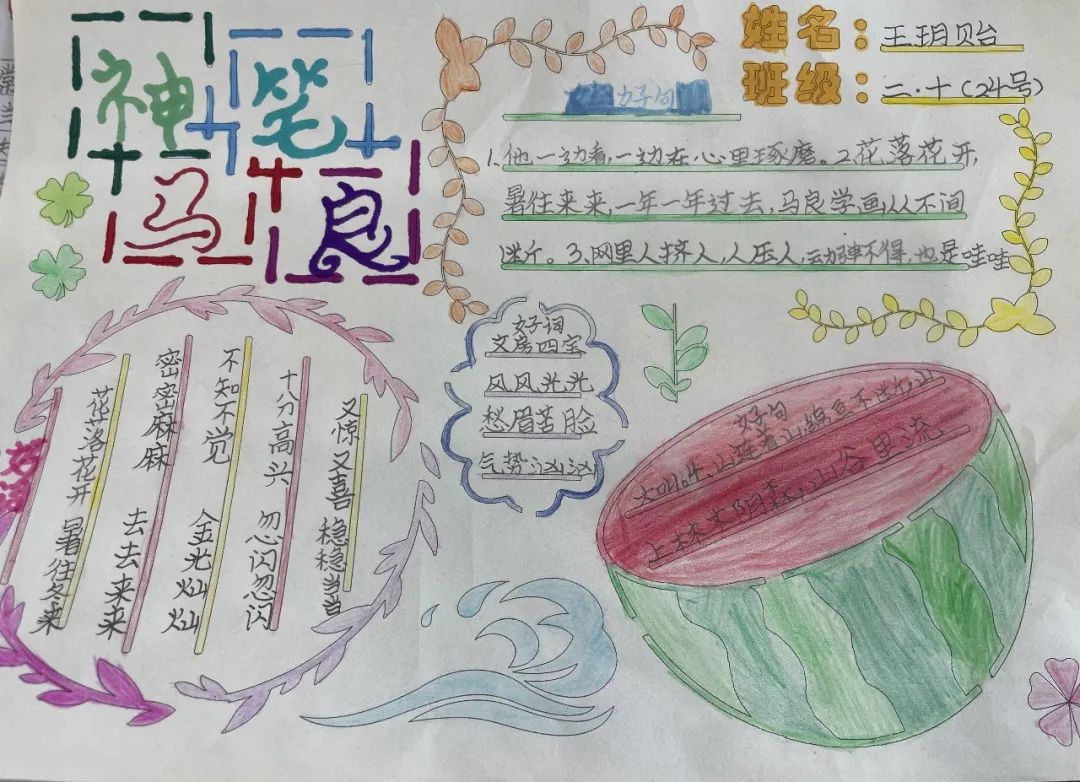 神笔
马良
姓名：王玥贻
班级：二·十(24号)
好句
1.他一边看,一边在心里琢磨。2.花落花开,
暑往来来,一年一年过去,马良学画从不间
断。3.网里人挤人,人压人,动弹不得,也是哇哇
好词
文房四宝
风风光光
愁眉苦脸
气势汹汹
花落花开 暑往冬来
密密麻麻 去去来来
不知不觉 金光灿灿
十分高兴 忽闪忽闪
又惊又喜 稳稳当当
好句
山连着山绵亘不断,山
上林木阴森,山谷里流